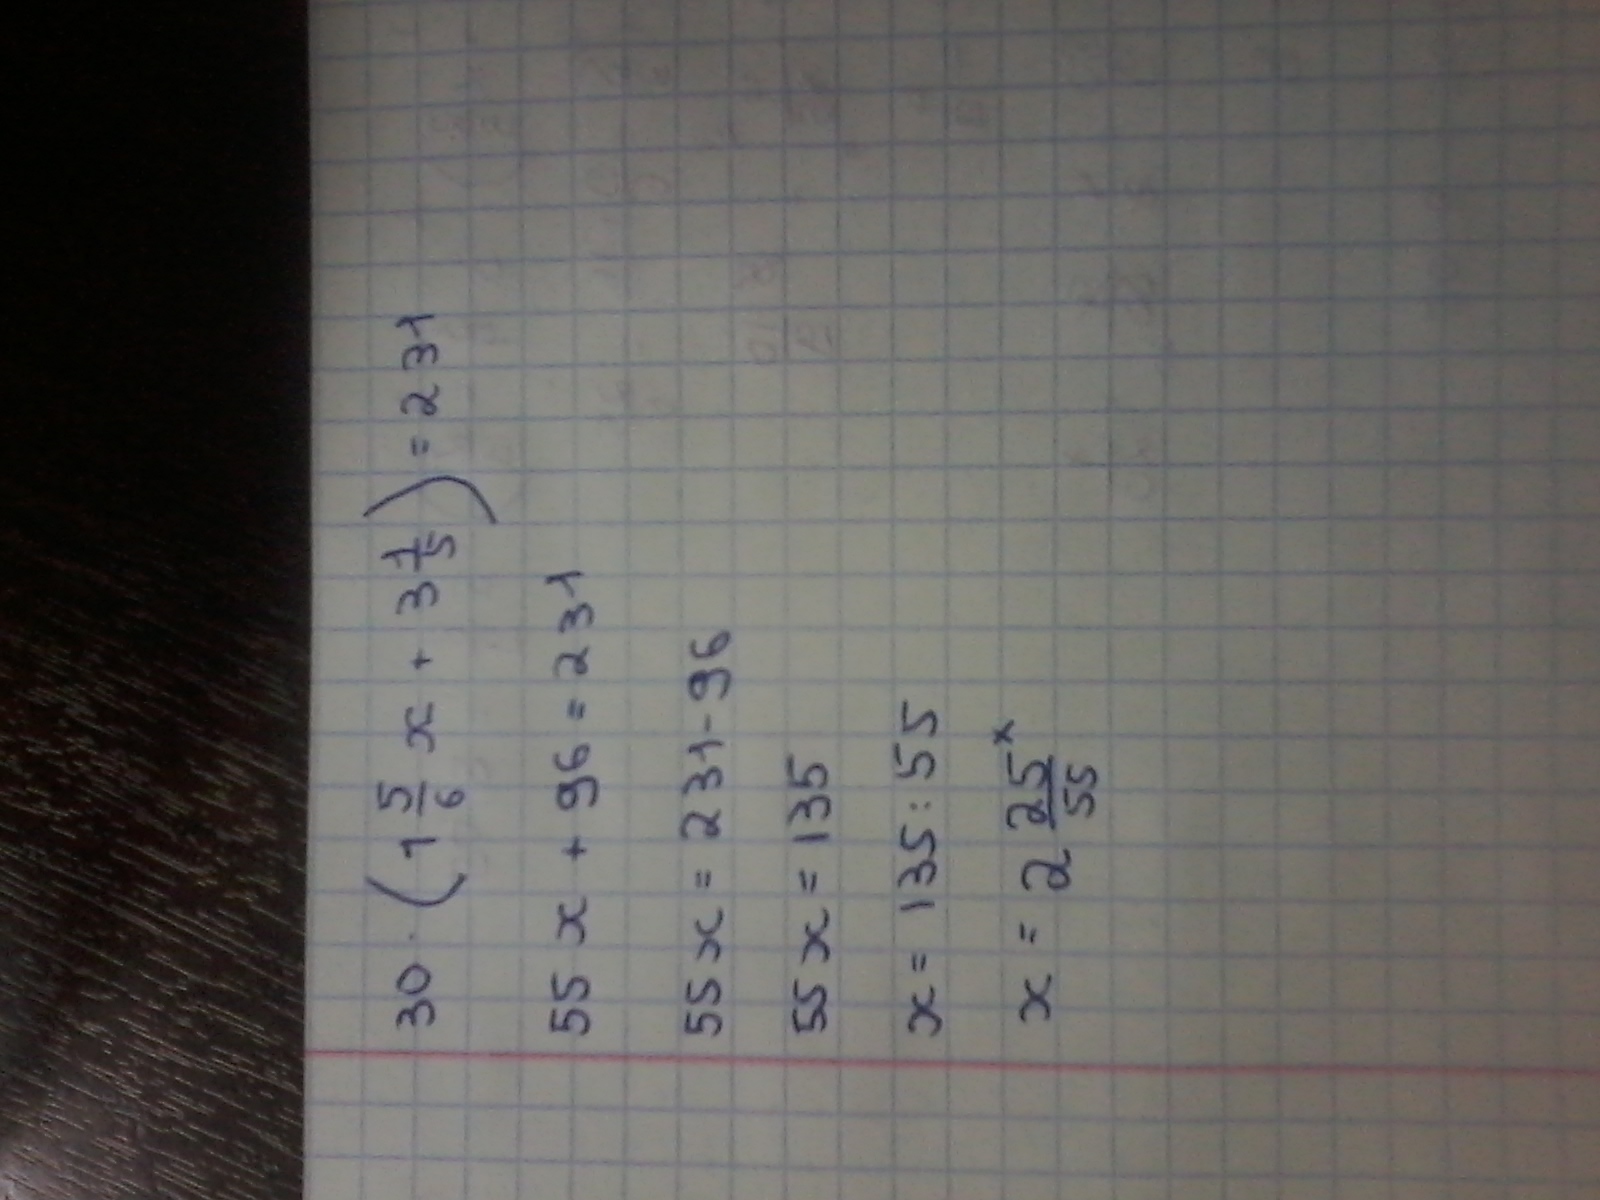 30 · (1 5/6 x + 3 1/5) = 231
55 x + 96 = 231
55 x = 231 - 96
55 x = 135
x = 135 : 55
x = 2 25/55 x